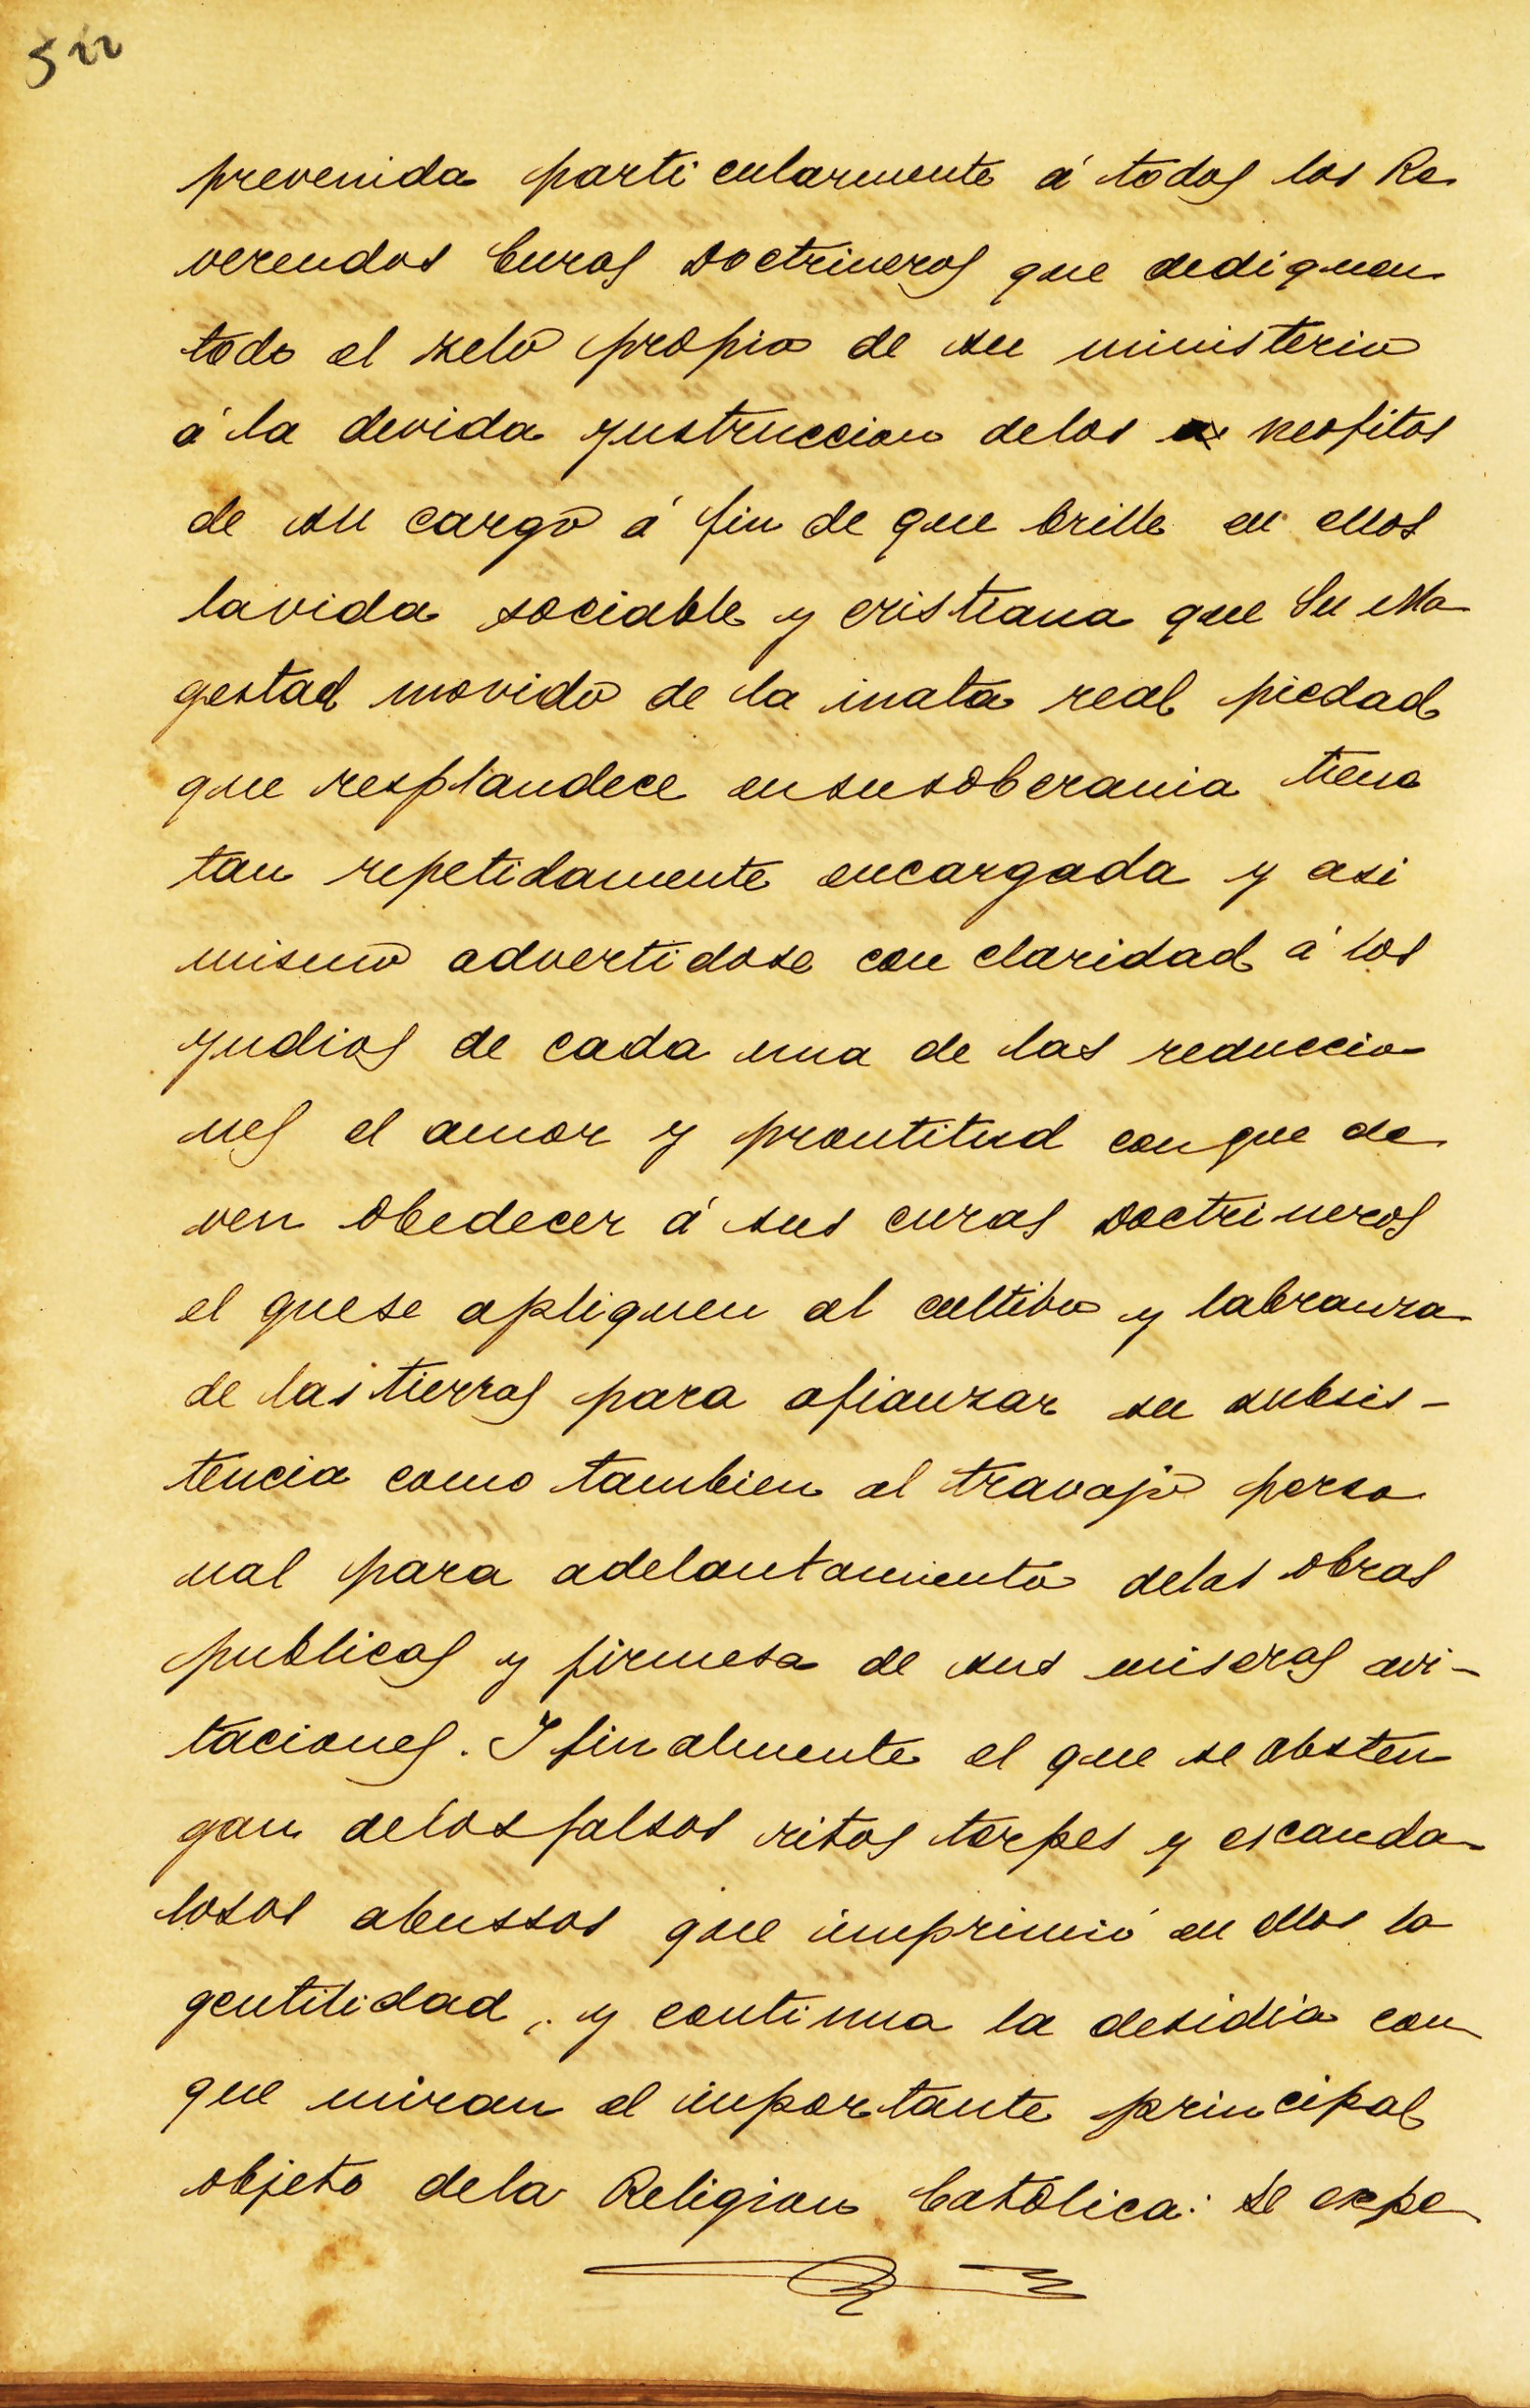 522
prevenida particularmente á todos los Re
verendos Curas Doctrineros que dediquen
todo el zelo propio de su ministerio
á la devida ynstruccion delos neofitos
de su cargo á fin de que brille en ellos
lavida sociable y cristiana que Su Ma
gestad movido de la inata real piedad
que resplandece ensusoberania tiene
tan repetidamente encargada y asi
mismo advertidose con claridad á los
yndios de cada una de las reduccio
nes el amor y prontitud conque de
ven obedecer á sus curas doctrineros
el quese apliquen al cultibo y labranza
de las tierras para afianzar su subsis-
tencia como tambien al travajo perso
nal para adelantamiento delas obras
publicas y firmesa de sus miseras avi-
taciones. I finalmente el que se absten
gan delos falsos ritos torpes y escanda
losos abussos que imprimió en ellos la
gentilidad, y continua la desidia con
que miran el importante principal
objeto dela Religion Catolica: Se expe